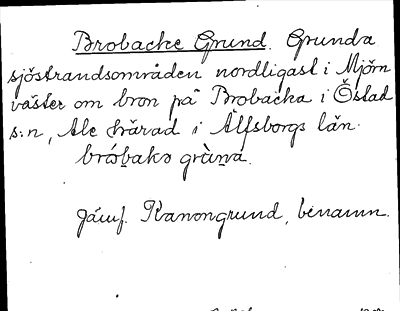 Brobacke Grund. Grunda
sjöstrandsområden nordligast i Mjörn
väster om bron på Brobacka i Östad
s:n, Ale härad i Älfsborgs län.
bróbakə grùn̥a.
Jämf. Kanongrund, benämn.